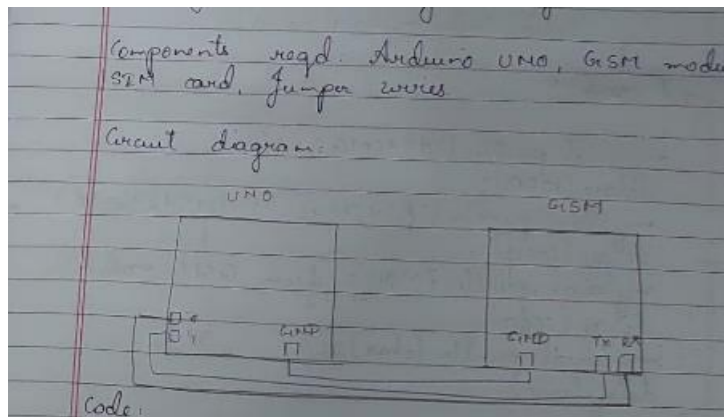 Components reqd. Arduino UNO, GSM modu
SIM card, Jumper wires
Circuit diagram:
UNO
GSM
GND
GND
TX
RX
Code: